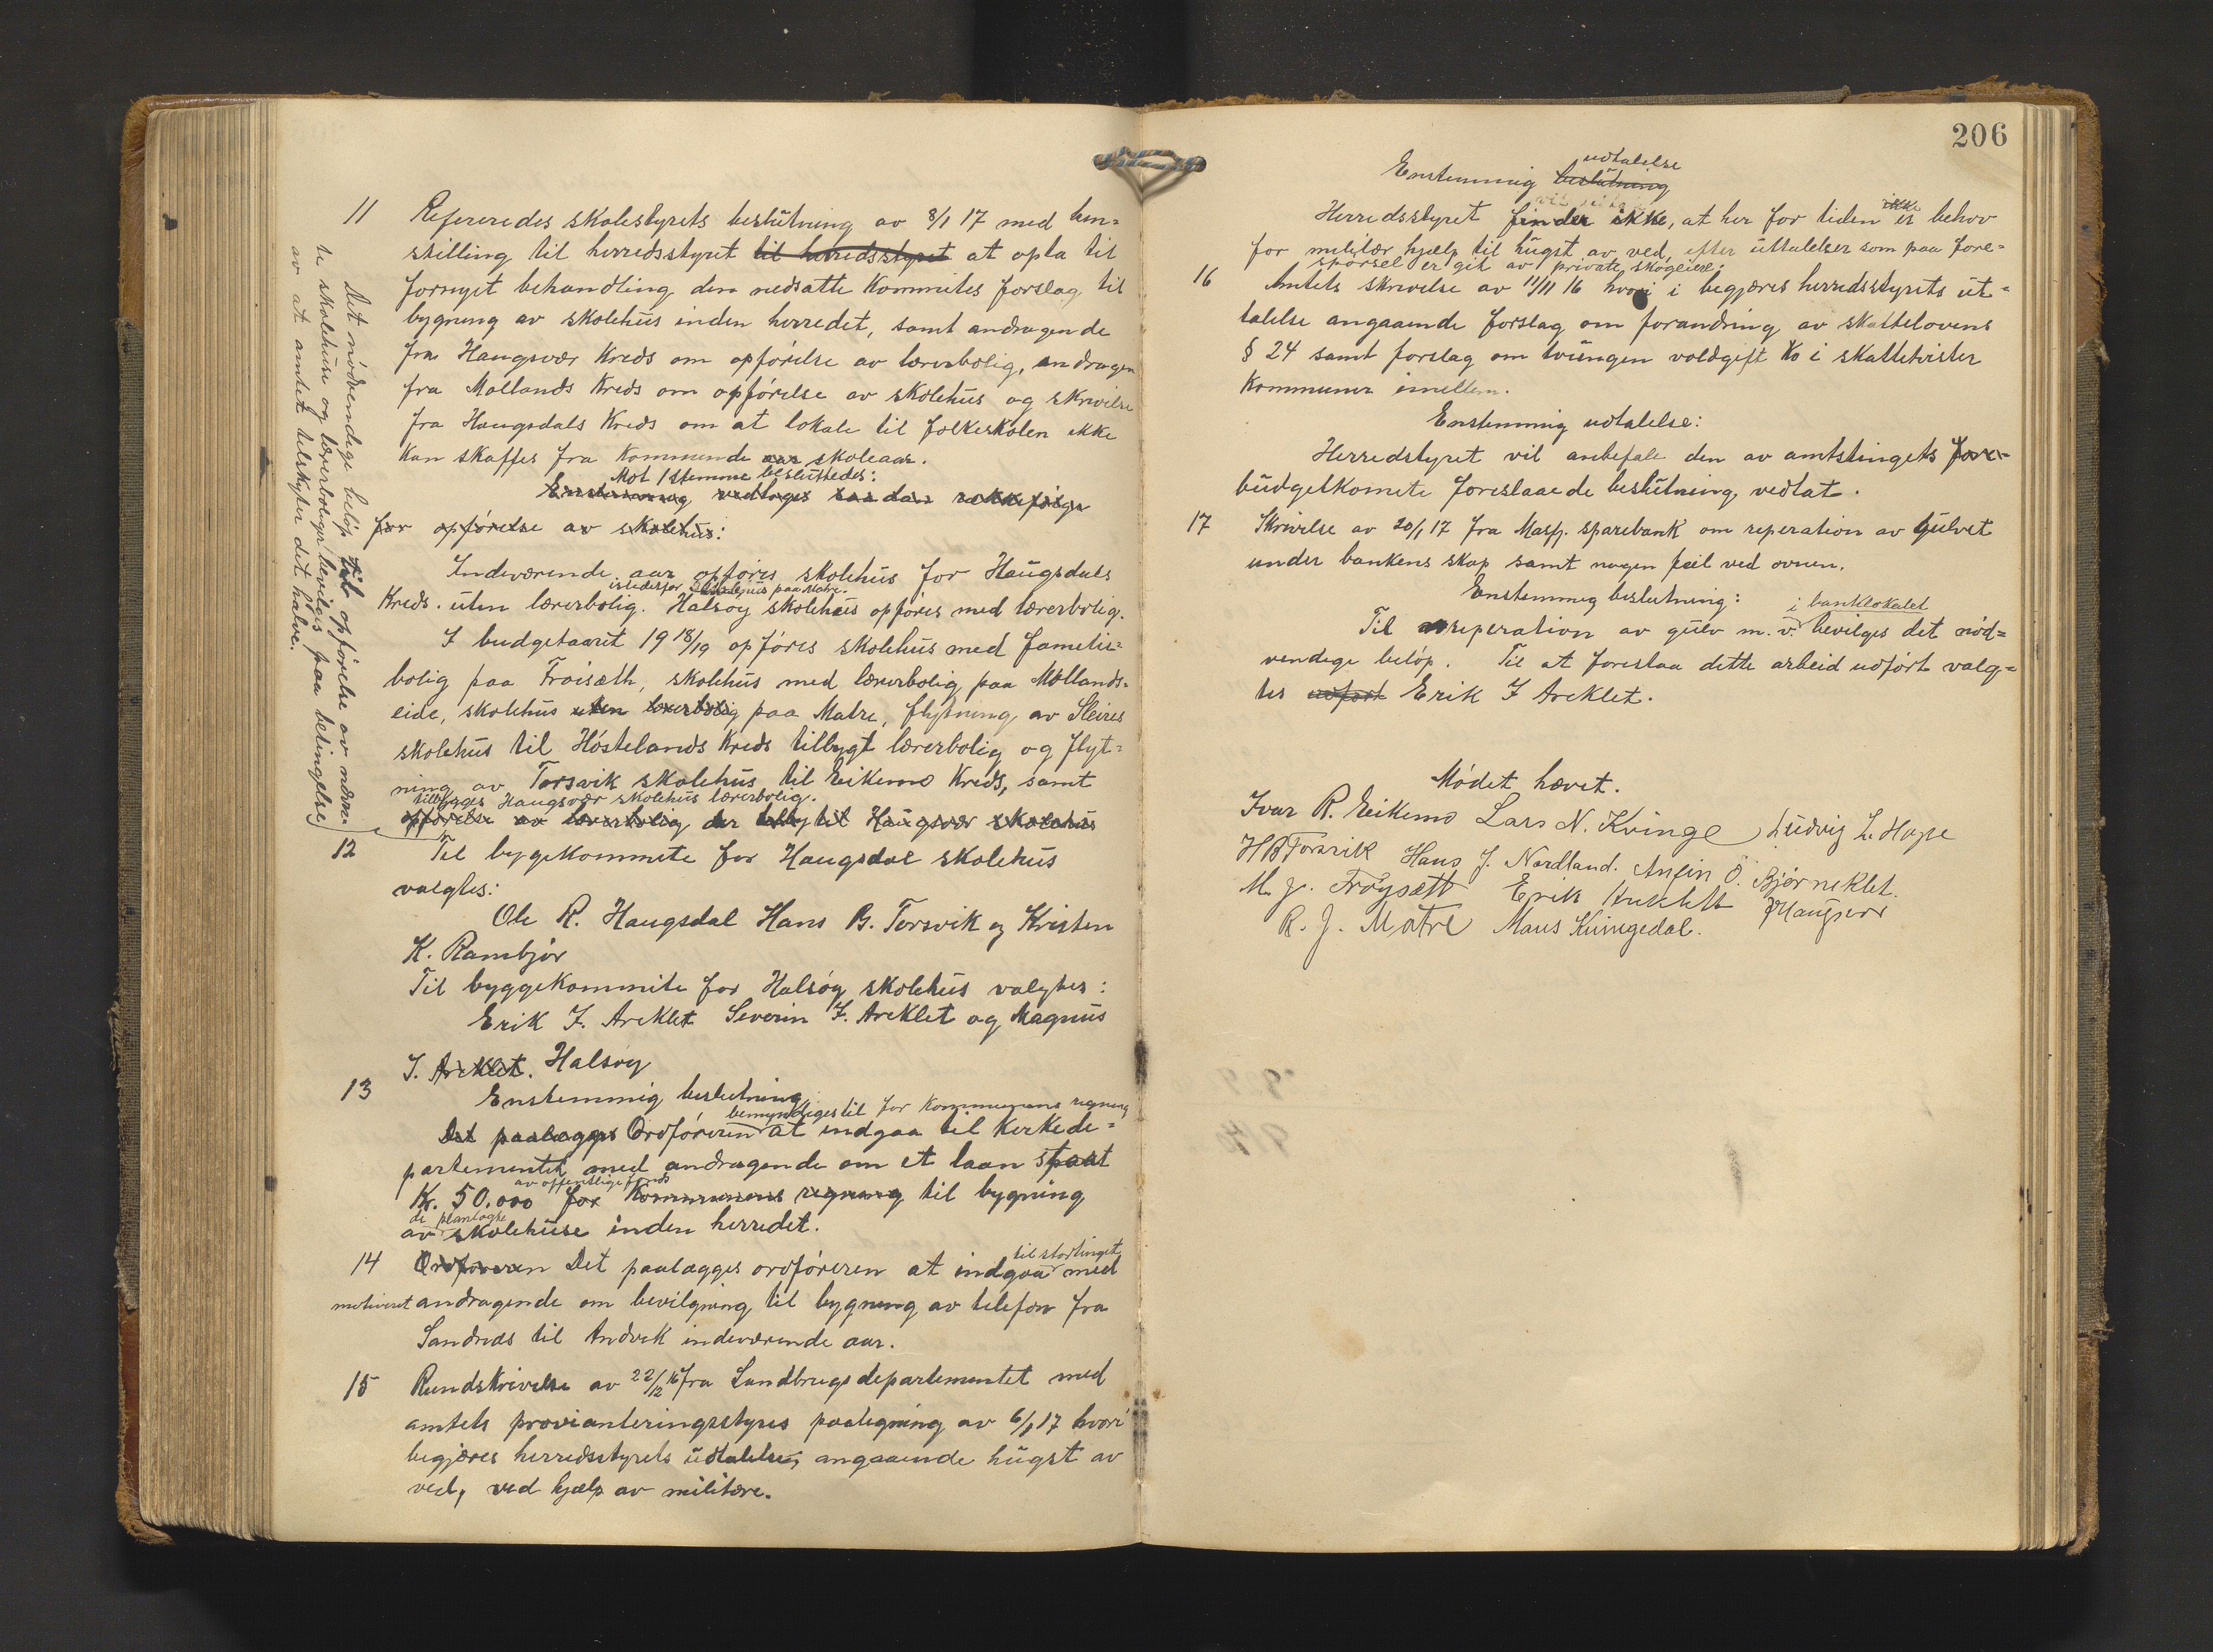 11 Refereredes skolestyrets beslutning av 8/1 17 med hen=
stilling til herredsstyret til herredsstyret at opta til
fornyet behandling den nedsatte Kommites forslag til
bygning av skolehus inden herredet, samt andragende
fra Haugsvær Kreds om opførelse av lærerbolig, andragen
fra Mollands Kreds om opførelse av skolehus og skrivelse
fra Haugsdals Kreds om at lokale til folkeskolen ikke
kan skaffes fra Kommende aar skoleaar.
Mot 1 stemme besluttedes:
Enstemmig vedtages saadan rækkefølge
for opførelse av skolehus:
Indeværende aar opføres skolehus for Haugsdals
istedetfor skolehus paa Matre.
Kreds. uten lærerbolig. Halsøy skolehus opføres med lærerbolig.
I budgetaaret 19 18/19 opføres skolehus med familie=
bolig paa Frøiseth, skolehus med lærerbolig paa Mollands=
eide, skolehus uten lærerbolig paa Matre, flytning av Sleires
skolehus til Høstelands Kreds tilbygt lærerbolig og flyt=
ning av Torsvik skolehus til Eikemo Kreds, samt
tilbygges Haugsvær skolehus lærerbolig.
opførelse av lærerbolig der til Haugsvær skolehus
Det nødvendige beløp til opførelse av nævn-
te skolehuse og lærerboliger bevilges paa betingelse
av at amtet tilskyter det halve.
12 Til bygekommite for Haugsdal skolehus
valgtes:
Ole R. Haugsdal Hans B. Torsvik og Kristen
K. Rambjør
Til byggekommite for Halsøy skolehus valgtes:
Erik I. Areklet Severin I. Areklet og Magnus
I. Areklet. Halsøy
13 Enstemmig beslutning
bemyndiges til for Kommunens regning
Det paalægges Ordføreren at indgaa til Kirkede=
partementet med andragende om et laan stort
av offentlige fonds
Kr. 50.000 for Kommunens regning til bygning
de planlagte
av skolehuse inden herredet.
til stortinget
14 Ordføreren Det paalægges ordføreren at indgaa med
motiveret andragende om bevilgning til bygning av telefon fra
Sandnes til Andvik indeværende aar.
15 Rundskrivelse av 22/12 16 fra Landbrugsdepartementet med
amtets provianteringsstyres paategning av 6/1 17 hvori
begjæres herredsstyrets udtalelse, angaaende hugst av
ved, ved hjælp av militære.
206
udtalelse
Enstemmig beslutning
ikke
Herredsstyret finder ikke, at her for tiden er behov
for militær hjælp til hugst av ved, efter uttalelser som paa fore=
spørsel er git av private skogeiere.
16 Amtets skrivelse av 11/11 16 hvori i begjæres herredsstyrets ut=
talelse angaaende forslag om forandring av skattelovens
§ 24 samt forslag om tvungen voldgift i skattetvister
Kommuner imellem.
Enstemmig udtalelse:
Herredstyret vil anbefale den av amtstingets fore-
budgetkomite foreslaaede beslutning vedtat.
17 Skrivelse av 20/1 17 fra Masfj. sparebank om reperation av Gulvet
under bankens skap samt nogen feil ved ovnen.
Enstemmig beslutning:
i banklokalet
Til reperation av gulv m. v. bevilges det nød=
vendige beløp. Til at foreslaa dette arbeid udført valg=
tes udført Erik I Areklet.
Mødet hævet.
Ivar R. Eikemo Lars N. Kvinge Ludvig L. Hope
HB Torsvik Hans J. Nordland. Anfin O. Bjørneklet.
M. J. Frøysætt Erik Areklett Haugsvær
R. J. Matre Mons Kvingedal.